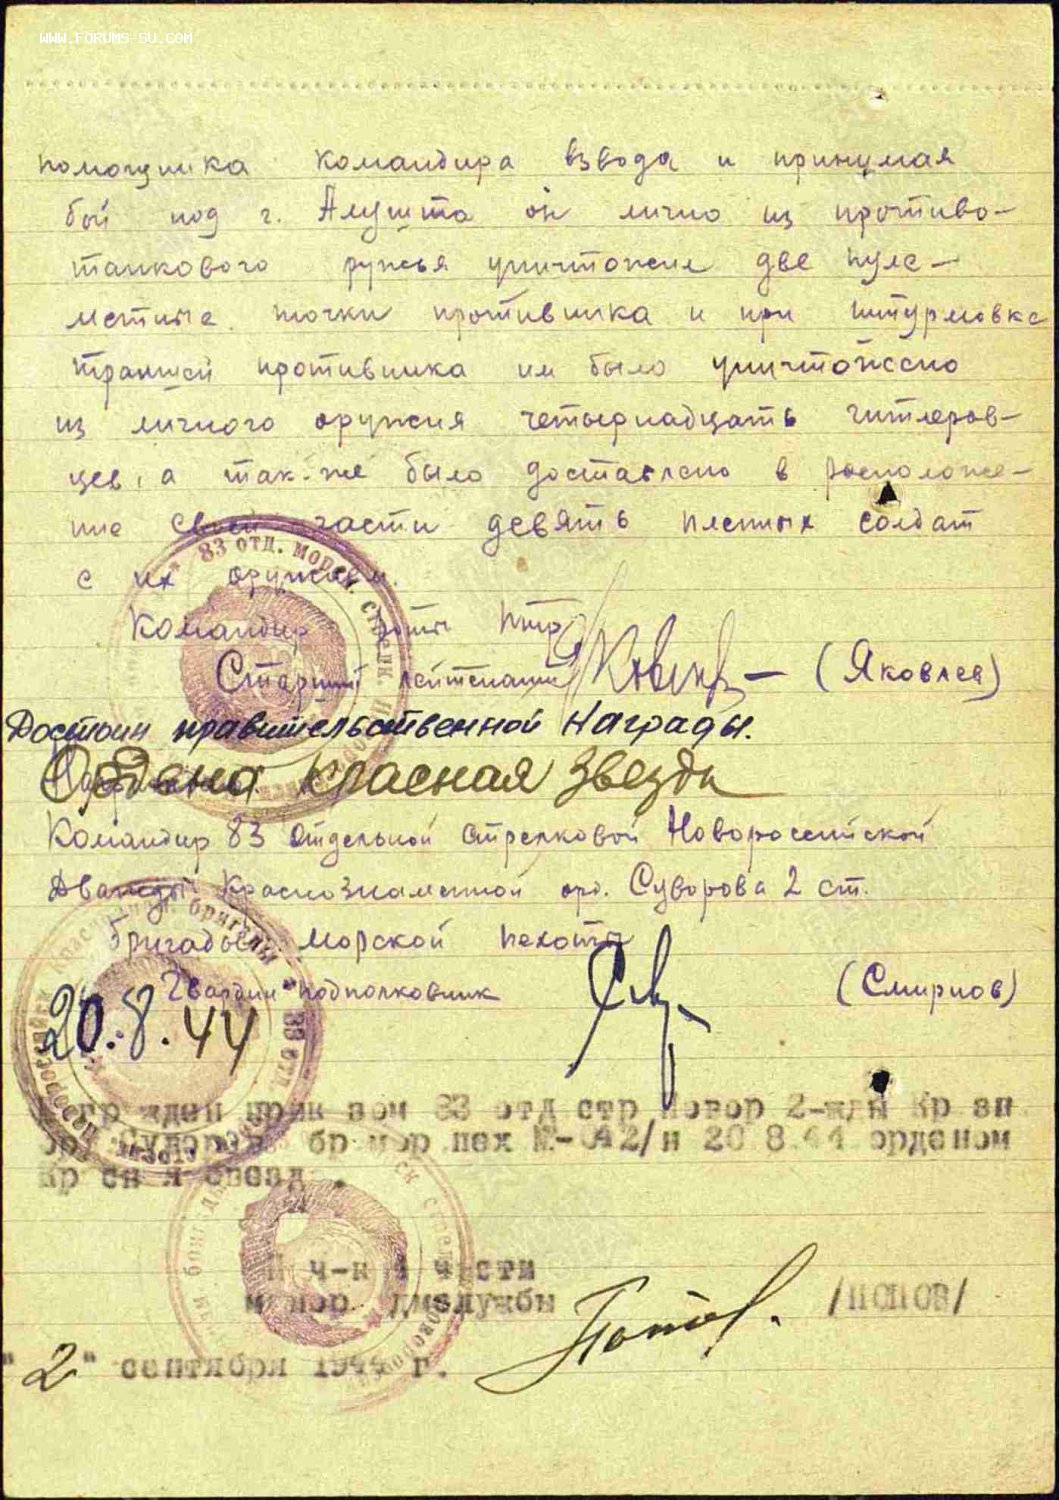 WWW.FORUMS-SU.COM
помощника командира взвода и принимая
бой под г. Алушта он лично из противо-
танкового ружья уничтожил две пуле-
метные точки противника и при штурмовке
траншей противника им было уничтожено
из личного оружия четырнадцать гитлеров-
цев, а так-же было доставлено в расположе-
ние своей части девять пленных солдат
с их оружием.
Командир роты ПТР
Старший лейтенант (Яковлев)
Достоин правительственной Награды.
Ордена Красная Звезда
Командир 83 Отдельной Стрелковой Новороссийской
Дважды Краснознаменной орд. Суворова 2 ст.
бригады морской пехоты
Гвардии подполковник (Смирнов)
20.8.44
83 отд. морск. стрелк.
бригады 83 отд.
Награжден приказом 83 отд стр Новор 2-жды Кр зн
ор Суворова бр мор пех №-042/н 20 8.44 орденом
Кр сн я звезд .
Н ч-к 4 части
майор адмслужбы Попов. /ПОПОВ/
"2" сентября 1944 г.